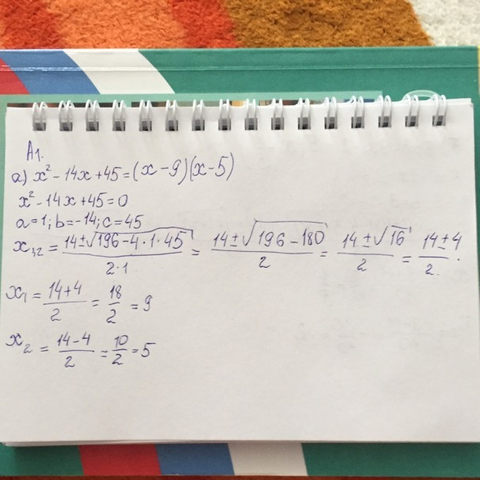 А1.
а) x² - 14x + 45 = (x - 9)(x - 5)
x² - 14x + 45 = 0
a = 1; b = -14; c = 45
x₁,₂ = (14 ± √(196 - 4·1·45))/(2·1) = (14 ± √(196 - 180))/2 = (14 ± √16)/2 = (14 ± 4)/2.
x₁ = (14 + 4)/2 = 18/2 = 9
x₂ = (14 - 4)/2 = 10/2 = 5